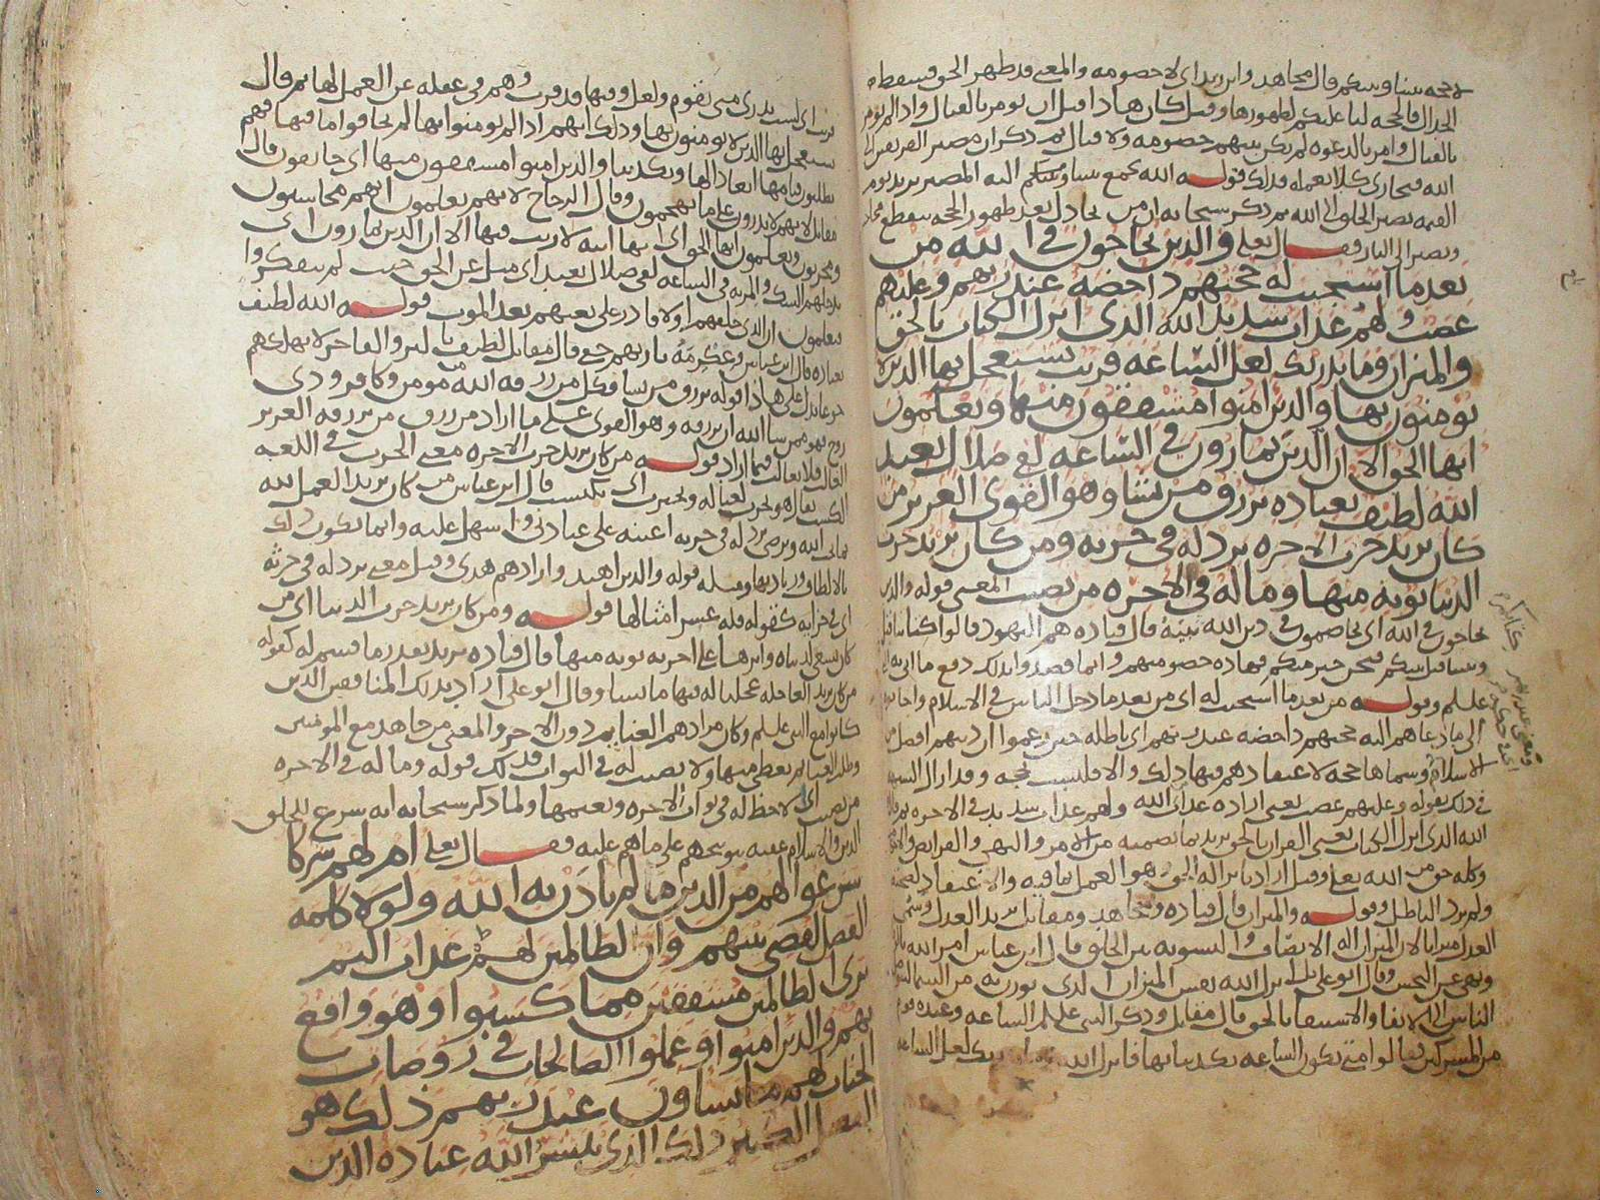 لا حجة بيننا وبينكم قال مجاهد وابن زيد اى لا خصومه والمعنى قد ظهر الحق فسقط
الجدال فالحجه لنا عليكم لظهورها وقيل كان هذا قبل ان يومر بالقتال واذا لم يومر
بالقتال وامر بالدعوه لم يكن بينهم خصومه ولا قتال ثم ذكر ان مصير الفريقين الى
الله فيجازى كلا بعمله فذلك قوله الله يجمع بيننا وبينكم اليه المصير يريد يوم
القيمه يصير الخلق الى الله ثم ذكر سبحانه ان من يجادل بعد ظهور الحجه ينقطع
ويصير الى النار فقال تعلى والذين يحاجون فى الله من
بعد ما استجيب له حجتهم داحضه عند ربهم وعليهم
غضب ولهم عذاب شديد الله الذى انزل الكتاب بالحق
والميزان وما يدريك لعل الساعه قريب يستعجل بها الذين لا
يومنون بها والذين امنوا مشفقون منها ويعلمون
انها الحق الا ان الذين يمارون فى الساعه لفى ضلال بعيد
الله لطيف بعباده يرزق من يشا وهو القوى العزيز من
كان يريد حرث الاخره نزد له فى حرثه ومن كان يريد حرث
الدنيا نوته منها وما له فى الاخره من نصيب المعنى قوله والذين
يحاجون فى الله اى يخاصمون فى دين الله نبيه قال قتاده هم اليهود قالوا كتابنا قبل
ونبينا قبل نبيكم فنحن خير منكم فهاذه خصومتهم وانما قصدوا بذلك دفع ما اتى به
عليلم وقوله من بعد ما استجيب له اى من بعد ما دخل الناس فى الاسلام واجابوه
الى ما دعاهم اليه حجتهم داحضه عند ربهم اى باطله حين زعموا ان دينهم افضل من
الاسلام وسماها حجه لاعتقادهم فيها ذلك والا فليست بحجه وقد ازال الشبهه
فى ذلك بقوله وعليهم غضب يعنى اراده عذاب الله ولهم عذاب شديد فى الاخره ثم قال
الله الذى انزل الكتاب يعنى القران بالحق يريد بما تضمنه من الامر والنهى والفرايض
وكله حق من الله تعلى وقيل اراد بانزاله الحق هو العمل بما فيه والاعتقاد لصحته
ولم يرد الباطل وقوله والميزان قال قتاده ومجاهد ومقاتل يريد العدل وسمى
العدل ميزانا لان الميزان اله الانصاف والتسويه بين الخلق قال ابن عباس امر الله
ونهى عن البخس وقال ابو على بل انزل الله نفس الميزان الذى يوزن به من السما
الناس الى الايفا والاستيفا بالحق قال مقاتل وذكر النبى عليلم الساعه وعنده قوم
من المشركين فقالوا متى تكون الساعه تكذيبا بها فانزل الله وما يدريك لعل الساعه
قريب اى لست تدرى متى تقوم ولعل وقتها قد قرب وهم فى غفله عن العمل لها ثم قال
يستعجل بها الذين لا يومنون بها وذلك انهم اذا لم يومنوا بها لم يخافوا ما فيها فهم
يطلبون قيامها ابعادا لها وتكذيبا والذين امنوا مشفقون منها اى خايفون قال
مقاتل لانهم لا يدرون على ما يهجمون وقال الزجاج لانهم يعلمون انهم محاسبون
ومجزيون ويعلمون انها الحق اى انها اتيه لا ريب فيها الا ان الذين يمارون اى
يدخلهم الشك والمريه فى الساعه لفى ضلال بعيد اى ميل عن الحق حيث لم يتفكروا
فيعلمون ان الذى خلقهم اولا قادر على بعثهم بعد الموت قوله الله لطيف
بعباده قال ابن عباس وعكرمه بار بهم حفى قال مقاتل لطيف بالبر والفاجر لا يهلكهم
جوعا يدل على هاذا قوله يرزق من يشا فكل من رزقه الله من مومن وكافر وذى
روح فهو ممن شا الله ان يرزقه وهو القوى على ما اراد من رزق من يرزقه العزيز
الغالب فلا يغالب فيما اراد قوله من كان يريد حرث الاخره معنى الحرث فى اللغه
الكسب يقال هو يحرث لعياله ويحترث اى يكتسب قال ابن عباس من كان يريد العمل لله
بما يحب الله ويرضى نزد له فى حرثه اعينه على عبادتى واسهل عليه وانما يكون ذلك
بالالطاف وزيادتها ومثله قوله والذين اهتدوا زادهم هدى وقيل معنى نزد له فى حرثه
اى فى جزايه كقوله فله عشر امثالها قوله ومن كان يريد حرث الدنيا اى من
كان يسعى لدنياه واثرها على اخرته نوته منها قال قتاده يريد بقدر ما قسم له كقوله
من كان يريد العاجله عجلنا له فيها ما نشا وقال ابو على اراد بذلك المنافقين الذين
كانوا مع النبى عليلم وكان مرادهم الغنايم دون الاجر والمعنى من جاهد مع المومنين
وطلب الغنايم يعطى منها ولا نصيب له فى الثواب فذلك قوله وما له فى الاخره
من نصيب اى لا حظ له فى ثواب الاخره ونعيمها ولما ذكر سبحانه انه شرع للخلق
الدين والاسلام عقبه بتوبيخهم على ما هم عليه فقال تعلى ام لهم شركا
شرعوا لهم من الدين ما لم ياذن به الله ولولا كلمه
الفصل لقضى بينهم وان الظالمين لهم عذاب اليم
ترى الظالمين مشفقين مما كسبوا وهو واقع
بهم والذين امنوا وعملوا الصالحات فى روضات
الجنات لهم ما يشاون عند ربهم ذلك هو
الفضل الكبير ذلك الذى يبشر الله عباده الذين